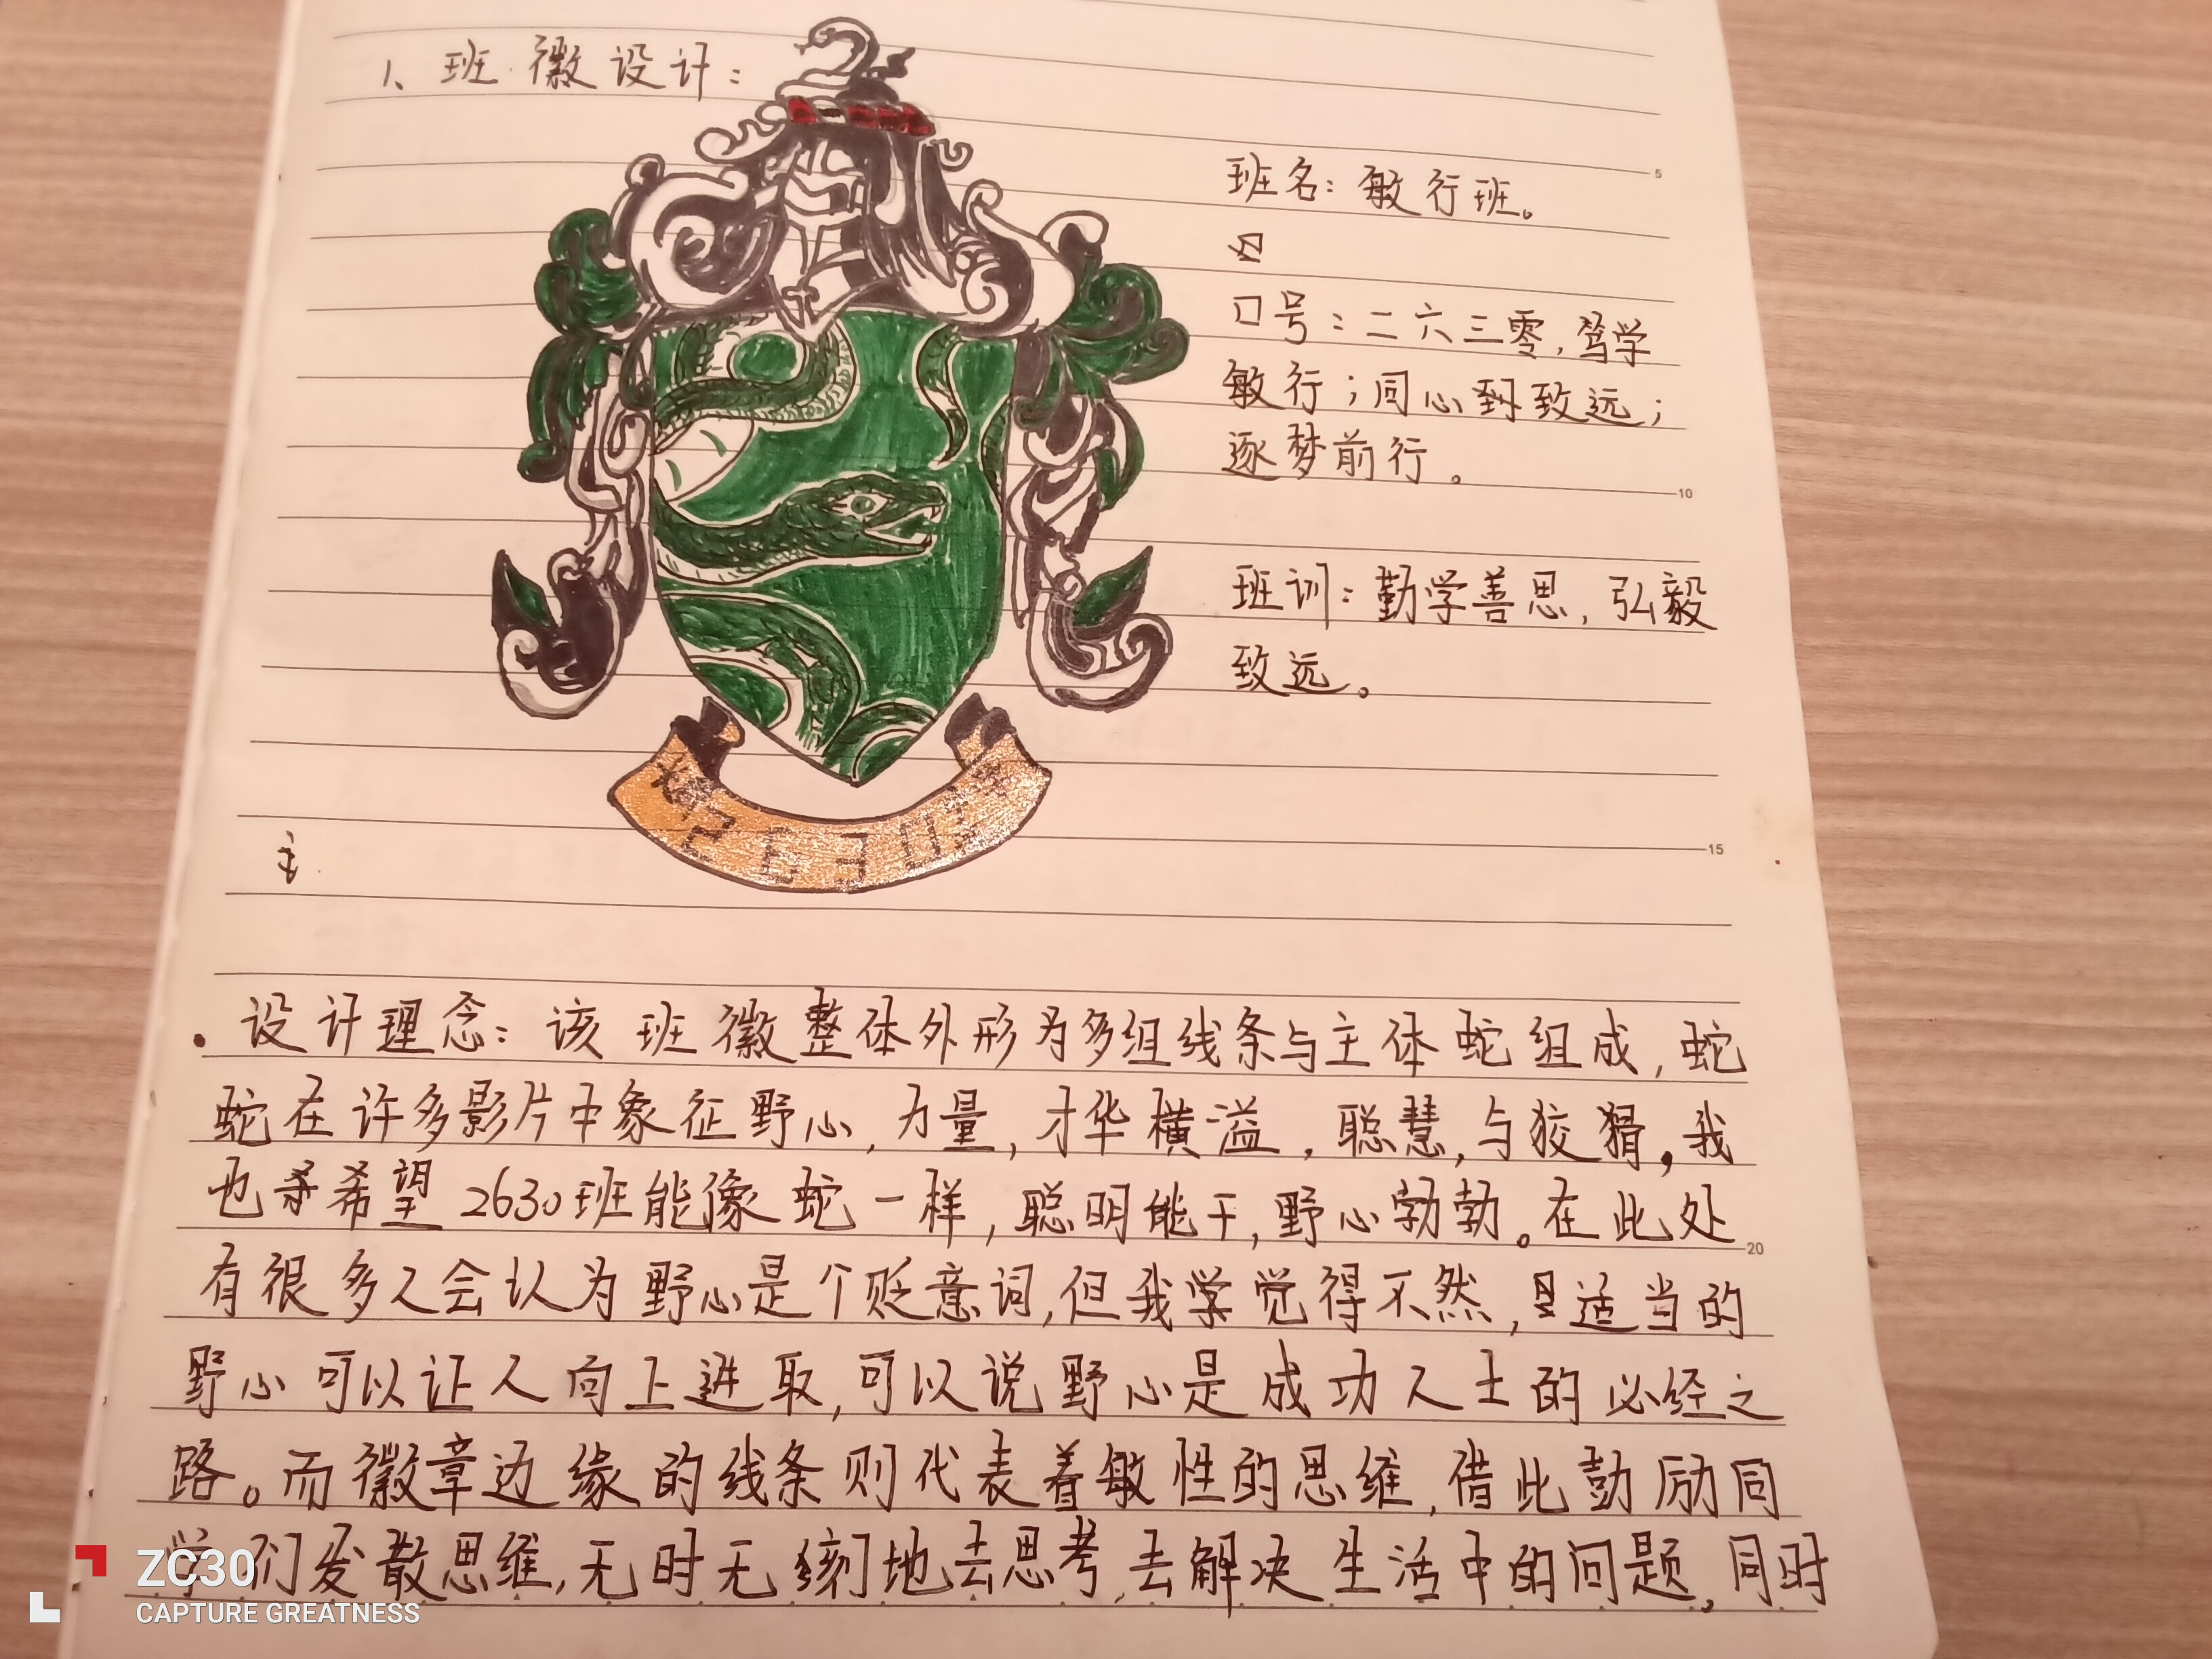 1、班徽设计：
班名：敏行班。
口号：二六三零，笃学
敏行；同心致远；
逐梦前行。
班训：勤学善思，弘毅
致远。
2630
设计理念：该班徽整体外形为多组线条与主体蛇组成，蛇
蛇在许多影片中象征野心，力量，才华横溢，聪慧，与狡猾，我
也希望2630班能像蛇一样，聪明能干，野心勃勃。在此处
有很多人会认为野心是个贬意词，但我觉得不然，适当的
野心可以让人向上进取，可以说野心是成功人士的必经之
路。而徽章边缘的线条则代表着敏性的思维，借此鼓励同
学们发散思维，无时无刻地去思考，去解决生活中的问题，同时
5
10
15
20
ZC30
CAPTURE GREATNESS